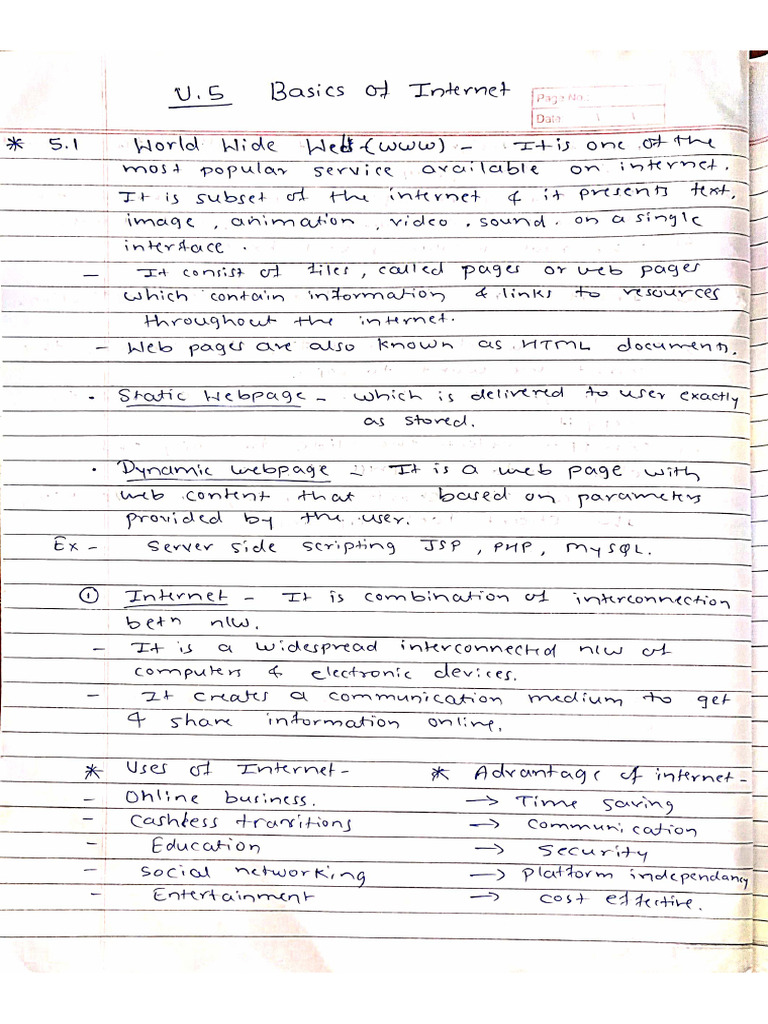 U.5 Basics of Internet
Page No.:
Date
* 5.1 World Wide Web (WWW) - It is one of the
most popular service available on internet.
It is subset of the internet & it presents text,
image, animation, video, sound. on a single
interface.
- It consist of files, called pages or web pages
which contain information & links to resources
throughout the internet.
- Web pages are also known as HTML documents.
• Static Webpage - which is delivered to user exactly
as stored.
• Dynamic webpage - It is a web page with
web content that based on parameters
provided by the user.
Ex - Server side scripting JSP, PHP, MySQL.
① Internet - It is combination of interconnection
betn n/w.
- It is a widespread interconnected n/w of
computers & electronic devices.
- It creates a communication medium to get
& share information online.
* Uses of Internet - * Advantage of internet -
- Online business. → Time saving
- Cashless transitions → Communication
- Education → Security
- Social networking → Platform independancy
- Entertainment → Cost effective.